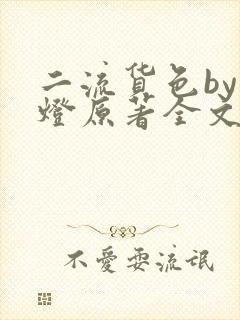 二流货色by
燈原著全文
不愛耍流氓